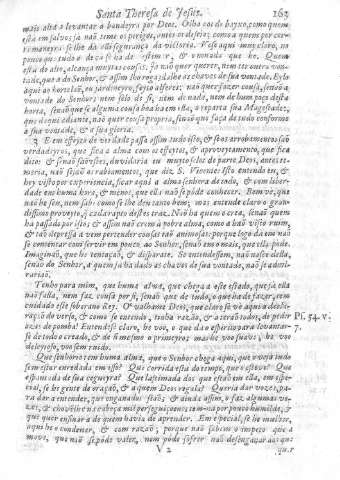 Santa Theresa de Jesus. 163
mais alto a levantar a bandeyra por Deos. Olha aos de bayxo, como quem
está em salvo; já não teme os perigos, antes os deseja; como a quem por cer-
ta maneyra se lhe dá alli segurança da victoria. Vese aqui muy claro, no
pouco que tudo o de cá se ha de estimar, & o nonada que he. Quem
está do alto, alcança muytas cousas. Já não quer querer, nem ter outra von-
tade, que a do Senhor, & assim lhe roga; dalhe as chaves de sua vontade. Eylo
aqui ao hortelão, ou jardineyro, feyto alferes: não quer fazer cousa, senão a
vontade do Senhor; nem sello de si, nem de nada, nem de hum poço desta
horta, senão que se alguma cousa boa ha em ella, a reparta sua Magestade;
que daqui em diante, não quer cousa propria, senão que faça de tudo conforme
a sua vontade, & a sua gloria.
3 E em effeyto de verdade passa assim tudo isto, & se os arrobamentos são
verdadeyros, que fica a alma com os effeytos, & aproveytamento, que fica
dito: & se não são estes, duvidaria eu muyto serlos de parte Deos, antes te-
meria, não sejão os rabiamentos, que diz S. Vicente. Isto entendo eu, &
hey visto por experiencia, ficar aqui a alma senhora de tudo, & com liber-
dade em huma hora, & menos, que ella não se póde conhecer. Bem vê, que
não he seu, nem sabe como se lhe deu tanto bem; mas entende claro o gran-
dissimo proveyto, que cada rapto destes traz. Não ha quem o crea, senão quem
ha passado por isto; & assim não crem à pobre alma, como a hão visto ruim,
& tão depressa a vem pertender cousas tão animosas; porque logo dá em não
se contentar com servir em pouco ao Senhor, senão em o mais, que ella póde.
Imaginão, que he tentação, & disparate. Se entendessem, não nasce della,
senão do Senhor, a quem já ha dado as chaves de sua vontade, não se admi-
rarião.
Tenho para mim, que huma alma, que chega a este estado, que já ella
não falla, nem faz cousa por si, senão que de tudo, o que ha de fazer, tem
cuidado este soberano Rey. O valhame Deos, que claro se vê aqui a decla-
ração do verso, & como se entende, tinha razão, & a terão todos, de pedir
azas de pomba! Entendese claro, he voo, o que dá o espirito para levantar-
se de todo o creado, & de si mesmo o primeyro; mas he voo suave, he voo
deleytoso, voo sem ruido.
Psl. 54. v. 7.
Que senhorio tem huma alma, que o Senhor chega aqui, que o veja tudo
sem estar enredada em isso? Que corrida está do tempo, que o esteve! Que
espantada de sua cegueyra! Que lastimada dos que estão em ella, em espe-
cial, se he gente de oração, & a quem Deos regala! Queria dar vozes, pa-
ra dar a entender, que enganados estão; & ainda assim, o faz algumas vo-
zes, & chovem-lhe na cabeça mil perseguiçoens; tem-na por pouco humilde, &
que quer ensinar de quem havia de aprender. Em especial, se he mulher,
aqui he o condenar, & com razão; porque não sabem o impeto que a
move, que não se póde valer, nem póde sofrer não desenganar aos que
V 2 que-